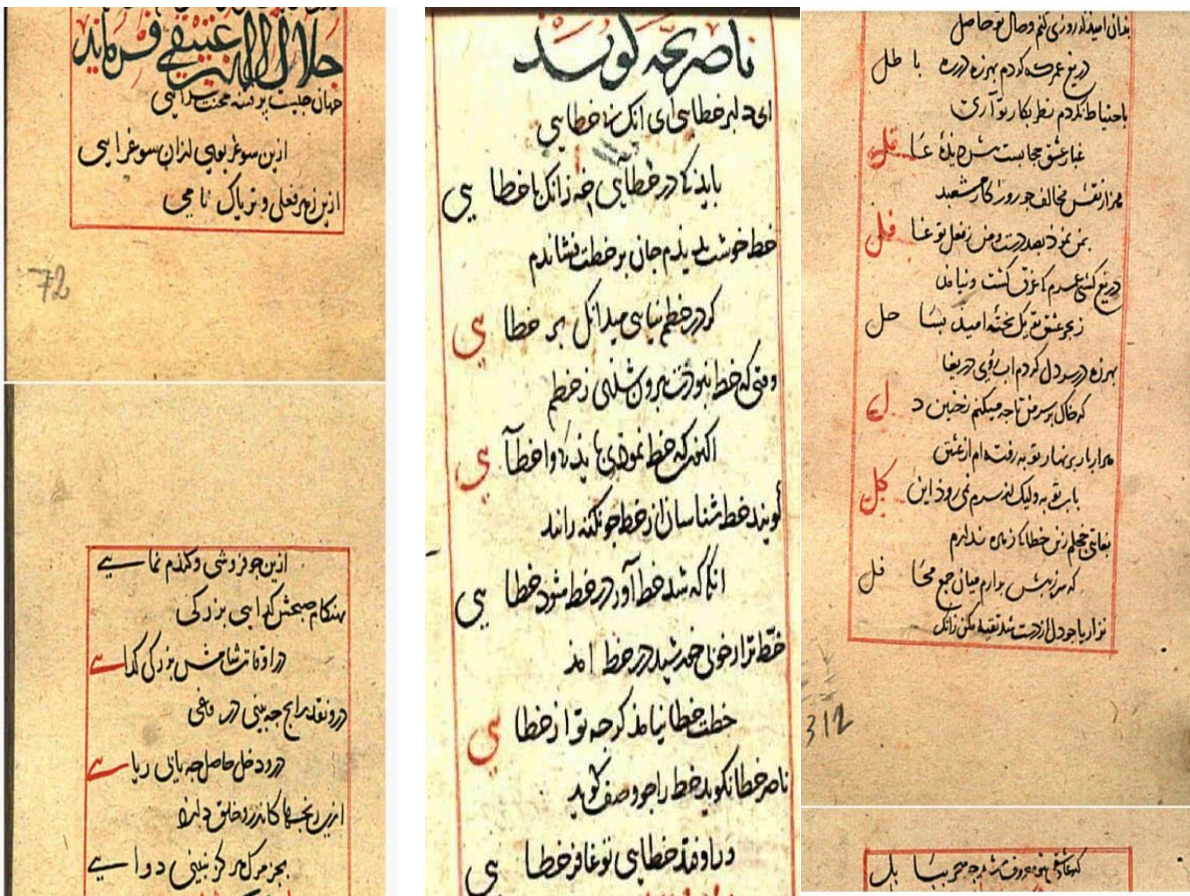 جلال الدین عتیقی فرماید
جهان چیست پر فتنه محنت سرایی
ازین سو غریوی ازان سو غرایی
ازین زهر فعلی و تریاک نامی
72
ازین جو فروشی و کندم نمایی
بهنکام صبحش کدایی بزرکی
در اوقات شامش بزرکی کدایی
درو نقد رایج چه بینی
درو دخل حاصل چه یابی ریایی
ازین رنجها کاندرو خلق دارد
بجز مرک هر کز نبینی دوایی
ناصر بجه کوید
ای دلبر خطایی ای انک نا خطایی
باید تا در خطایی چه زانک با خطایی
خط خوشت بدیدم جان بر خطت نشاندم
کر در خطم نیایی میدانک بر خطایی
وقتی که خط نبودت بیرون شدی ز خطم
اکنون که خط نمودی خطایی
کویند خط شناسان از خط جو نکته رانند
انکا که شد خط آور در خط شود خطایی
خط ترا خورشید در خط امد
خطت خطا نیامذ کرچه تو از خطایی
ناصر خطا نکوید خط را جو وصف کوید
در خطایی تو خطایی
بدان امید که روزی کنم وصال تو حاصل
دریغ عمر که کردم بهرزه در ره باطل
باحتیاط نکردم نظر بکار تو آری
غبار عشق حجابست پیش دیدهٔ عاقل
هزار نقش مخالف جو روزکار مشعبد
بمن نمود بصد دست و من ز فعل تو غافل
دریغ کشتی عمرم که غرق کشت و نیامد
ز بحر عشق تو یک تخته امید بساحل
بهرزه در سر دل کردم اب روی دریغا
که خاک بر سر من تا چه میکنم زچنین دل
هزار بار بزنهار توبه رفته‌ام از عشق
ولیک از سرم نمی رود این
بغایتی خجلم زین خطا که زهره ندارم
که سر ز پیش برارم میان جمع محافل
نزاریا جو دل از دست شد مکن زانک
312